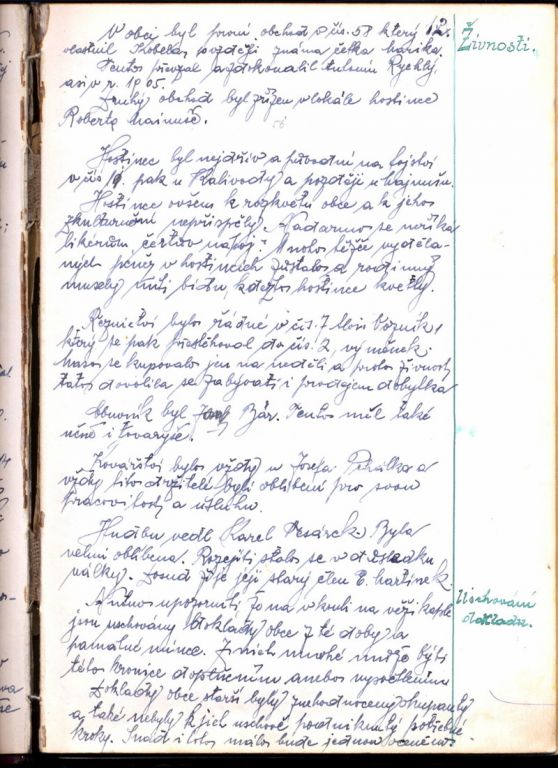 12.
Živnosti.
V obci byl první obchod v čís. 58 který
vlastnil Kobelas později známa četka hasika.
Tentos převzal a zdokonalil Antonín Rychlý,
asi v r. 1905.
Druhý obchod byl zřízen v lokále hostince
Roberta Hainuše.
Hostinec byl nejdřív a původní na fojtoí
v čís 19. pak u Kalivody a později u Hajnuše.
Hostince ovšem k rozkvětu obce a k jeho
zkulturnění nepřispěly. Nadarmo se neříká
likérům čertův nápoj. Mnoho těžce vyděla-
ných peněz v hostincích zůstalo a rodiny
musely tříti bídu, kdežto hostince kvetly.
Řeznictví bylo řádné v čís. 7 Alois
který se pak přestěhoval do čís. 2 výměnek.
Maso se kupovalo jen na neděli a proto živnost
tato dovolila se zabývati i prodejem dobytka
Obuvník byl Bár. Tento měl také
učně i tovaryše.
Kovářství bylo vždy u Josefa a
vždy tito držitelé byli oblíbeni pro svou
pracovitost a úsluhu.
Hudbu vedl Karel Pesárek. Byla
velmi oblíbena. Rozejití stalo se v důsledku
války. Dosud žije její starý člen E. Martinek.
Nutno upozorniti, že na vkouli na věži kaple
jsou uschovány doklady obce z té doby a
památné mince. Z nich mnohé může býti
této kronice doplněním anebo vysvětlením
Doklady obce starší byly znehodnoceny okupanty
a také nebyly k jich úschově podniknuty potřebné
kroky. Snad i toto málo bude jednou oceněno
Uschování
dokladu.